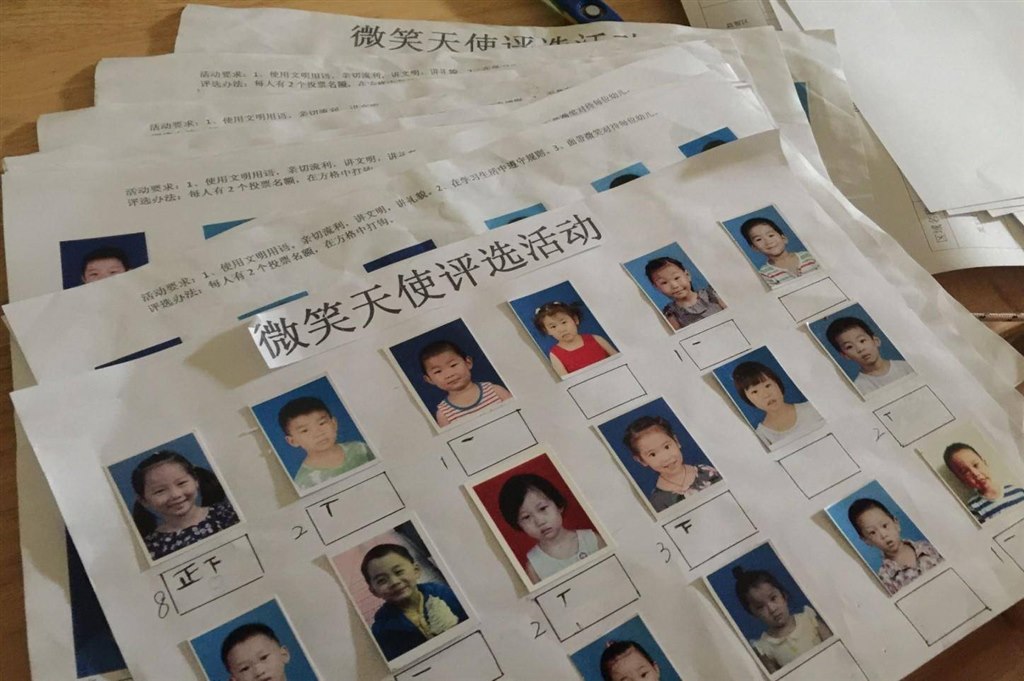 微笑天使评选活动
活动要求：1、使用文明用语，亲切流利，讲文明，讲礼貌
评选办法：每人有2个投票名额，在方
活动要求：1、使用文明用语，亲切流利，讲
微笑对待每位幼儿。
活动要求：1、使用文明用语，亲切流利，讲文明，讲
评选办法：每人有2个投票名额，在方格中打钩
活动要求：1、使用文明用语，亲切流利，讲文明，讲礼貌。2、在学习生活中遵守规则。3、面带微笑对待每位幼儿。
评选办法：每人有2个投票名额，在方格中打钩。
微笑天使评选活动
1 一
1 一
2 丅
2 丅
8 正下
3 下
2 丅
一
1 一
区域